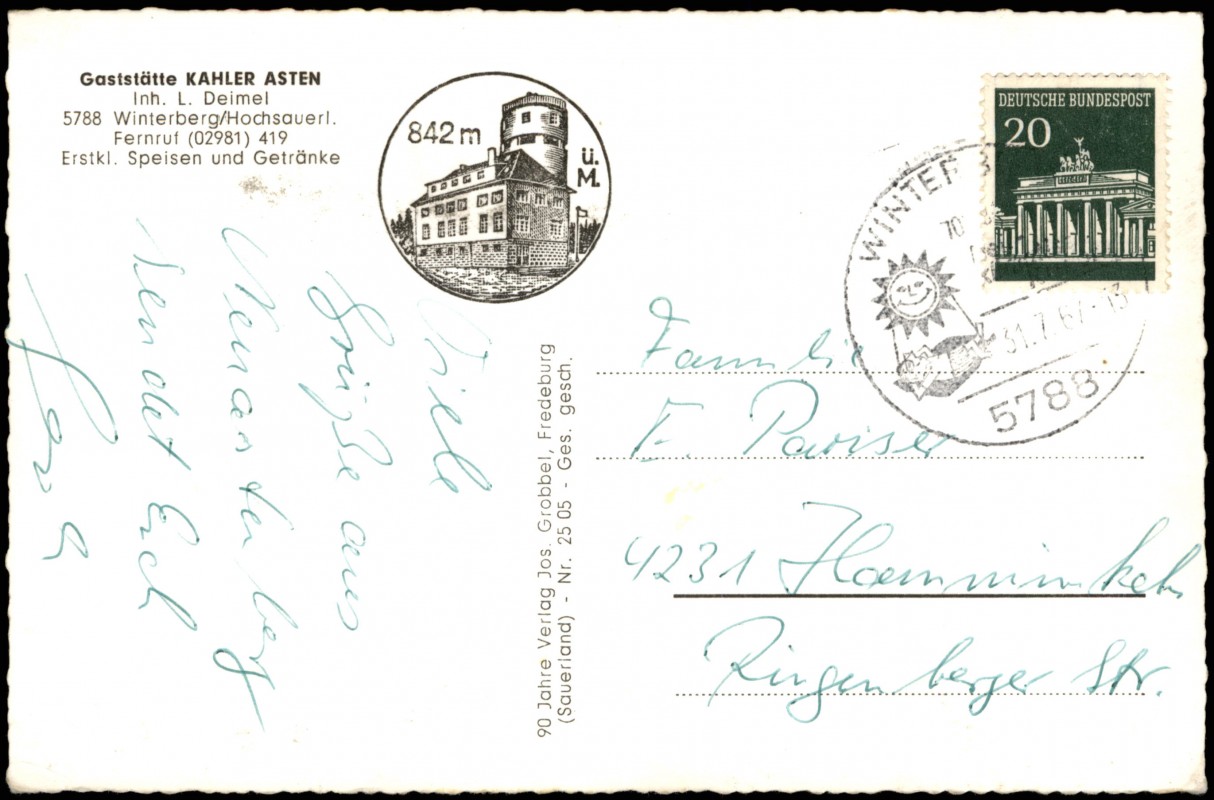 Gaststätte KAHLER ASTEN
Inh. L. Deimel
5788 Winterberg/Hochsauerl.
Fernruf (02981) 419
Erstkl. Speisen und Getränke
842 m
ü.
M.
Viele
Grüße aus
sendet Euch
90 Jahre Verlag Jos. Grobbel, Fredeburg
(Sauerland) - Nr. 25 05 - Ges. gesch.
DEUTSCHE BUNDESPOST
20
WINTER
31.7.67-13
5788
Familie
E. Pariser
4231 Hamminkeln
Ringenberger Str.